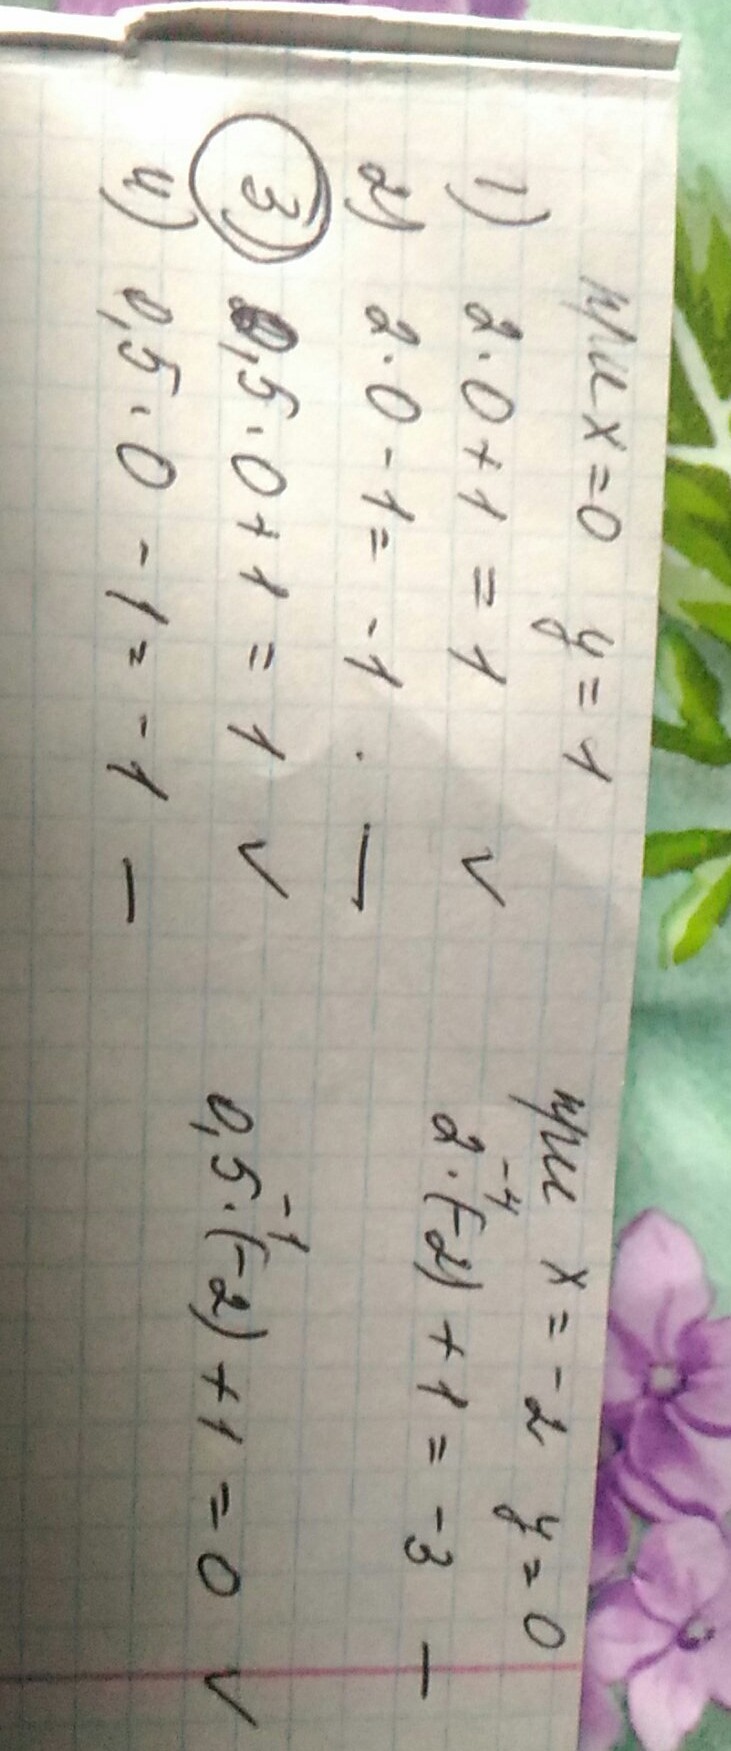 при x=0 y=1
1) 2·0+1=1 v
2) 2·0-1=-1. —
3) 0,5·0+1=1 v
4) 0,5·0-1=-1 —
при x=-2 y=0
-4
2·(-2)+1=-3 —
-1
0,5·(-2)+1=0 v